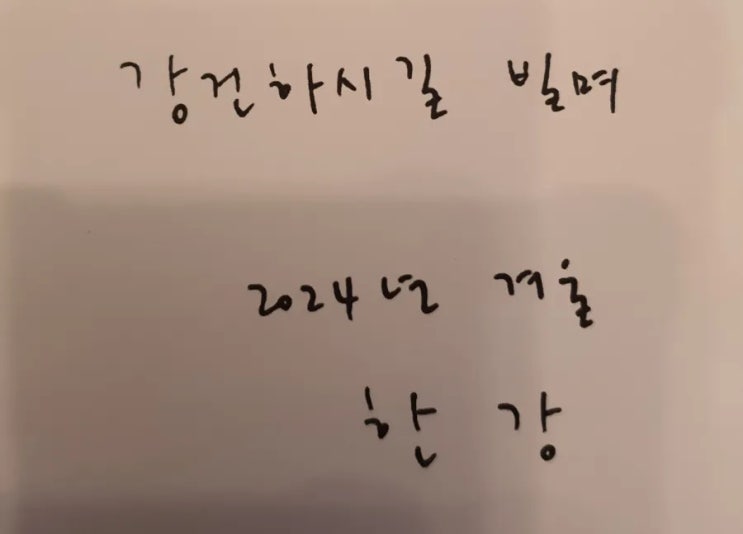 강건하시길 빌며
2024년 겨울
한 강